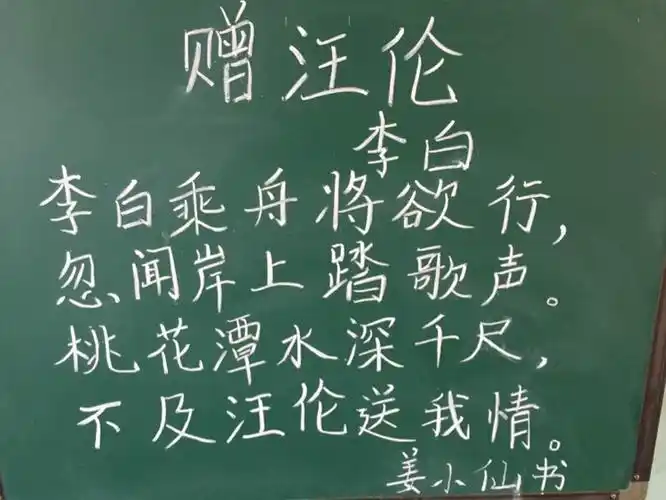 赠汪伦
李白
李白乘舟将欲行，
忽闻岸上踏歌声。
桃花潭水深千尺，
不及汪伦送我情。
姜小仙书